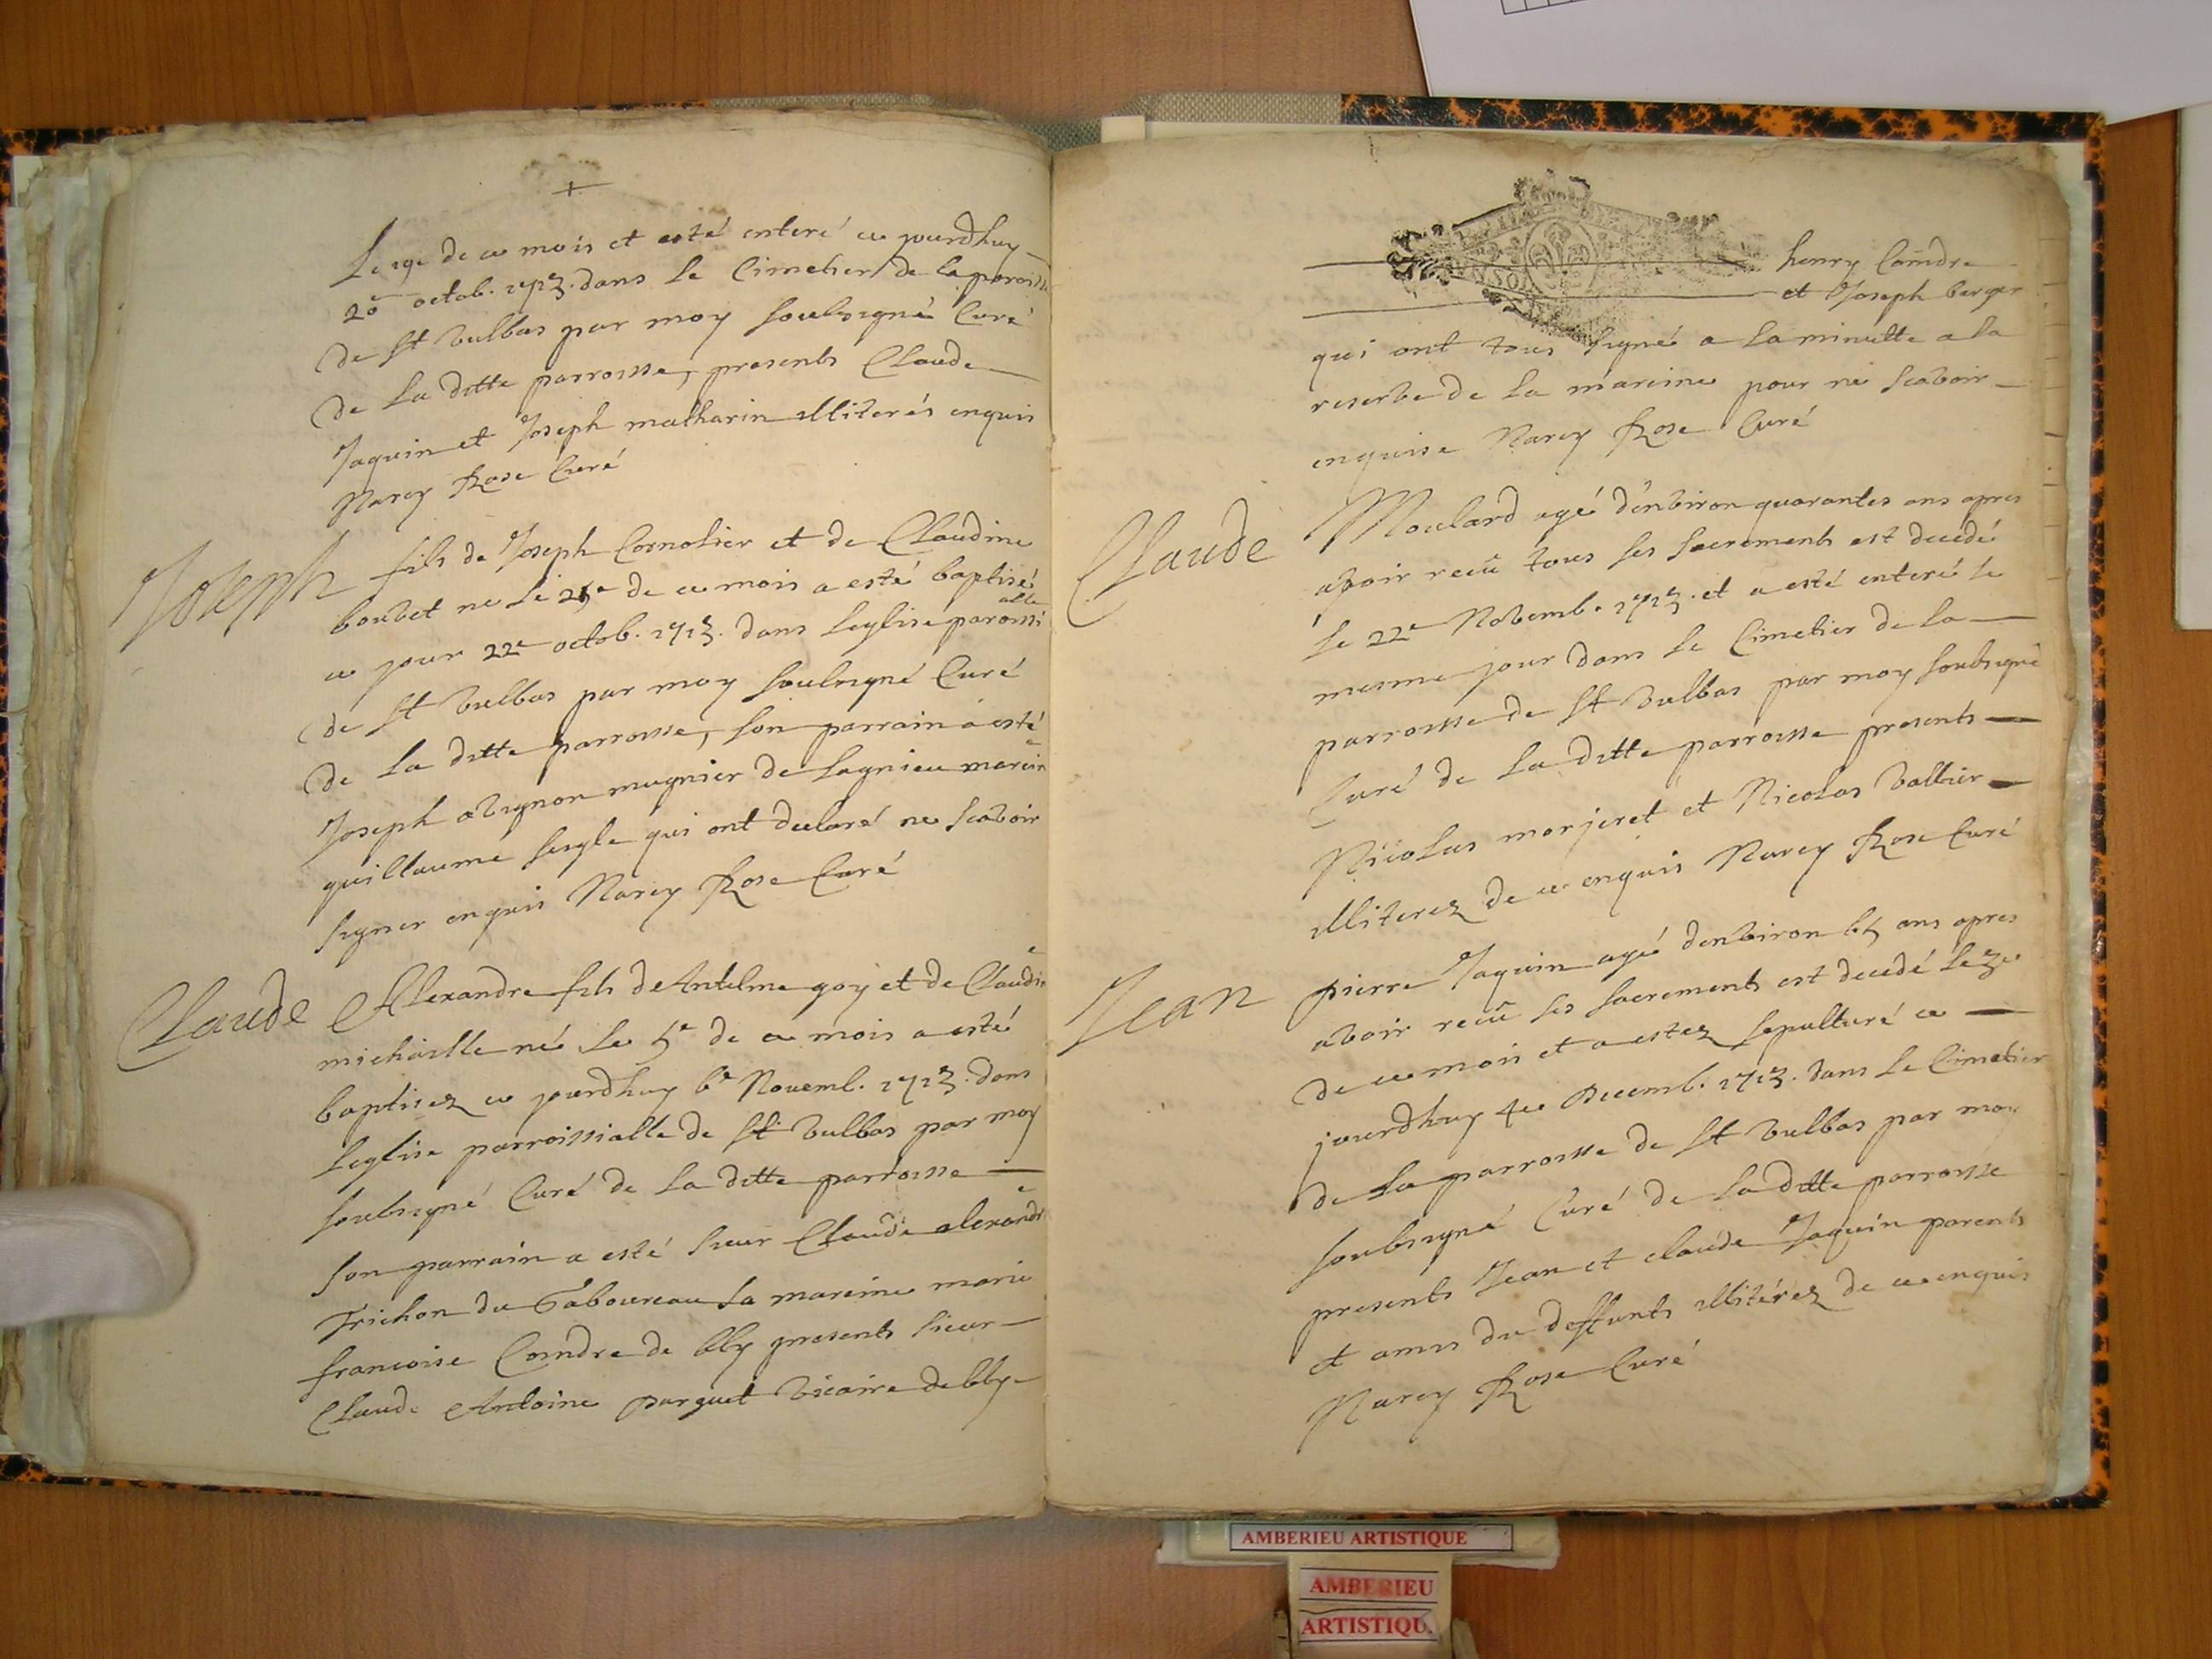 Le 19e de ce mois et esté enteré ce jourdhuy
20e octob. 1713. dans le Cimetier de la paroisse
de St Vulbas par moy soubsigné Curé
de la ditte parroisse, presents Claude
Jaquin et Joseph matharin illiterés enquis
Narcy Rose Curé
Joseph fils de Joseph Cornolier et de Claudine
boubet né le 21e de ce mois a esté baptisé
ce jour 22e octob. 1713. dans leglise paroissialle
de St Vulbas par moy soubsigné Curé
de la ditte parroisse, son parrain a esté
Joseph avignon mugnier de Lagnieu mareine
guillaume qui ont declaré ne scavoir
signer enquis Narcy Rose Curé
Claude Alexandre fils de Antelme goy et de Claudine
michaille né le 5e de ce mois a esté
baptisez ce jourdhuy 6e Novemb. 1713. dans
leglise parroissialle de St Vulbas par moy
soubsigné Curé de la ditte parroisse
son parrain a esté sieur Claude alexandre
Trichon du Taboureau la mareine marie
francoise Coindre de bly presents sieur
Claude Antoine parguet vicaire de bly
henry Coindre
et Joseph berger
qui ont tous signé a la minutte a la
reserve de la mareine pour ne scavoir
enquise Narcy Rose Curé
Claude Moulard agé d'environ quarantes ans apres
avoir reçû tous ses sacrements est decedé
le 22e Novemb. 1713. et a esté enteré le
mesme jour dans le Cimetier de la
parroisse de St Vulbas par moy soubsigné
Curé de la ditte parroisse presents
Nicolas morjeret et Nicolas Vallier
illiterez de ce enquis Narcy Rose Curé
Jean pierre Jaquin agé denviron 65 ans apres
avoir reçû ses sacrements est decedé le 3e
de ce mois et a estez sepulturé ce
jourdhuy 4e Decemb. 1713. dans le Cimetier
de la parroisse de St Vulbas par moy
soubsigné Curé de la ditte parroisse
presents Jean et claude Jaquin parents
et amis du deffunts illitérez de ce enquis
Narcy Rose Curé
AMBERIEU ARTISTIQUE
AMBERIEU
ARTISTIQU